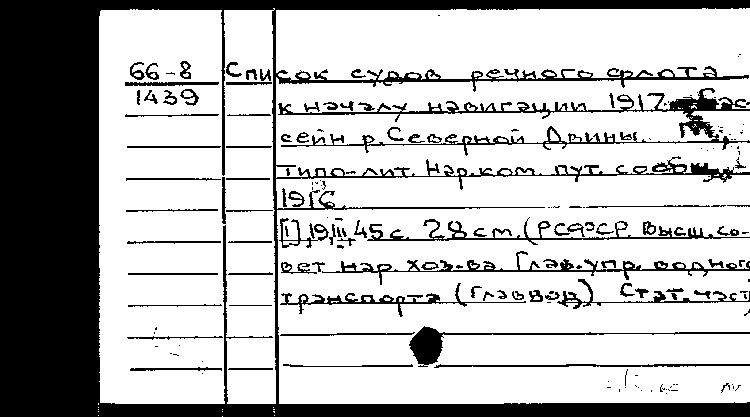 66-8 Список судов речного флота
1439 к началу навигации 1917 Бас-
сейн р. Северной Двины. М.,
Типо-лит. Нар. ком. пут. сообщ.,
1916.
[1], 19, III, 45 с. 28 см. (РСФСР. Высш. со-
вет нар. хоз-ва. Глав. упр. водного
транспорта (Главвод). Стат. част